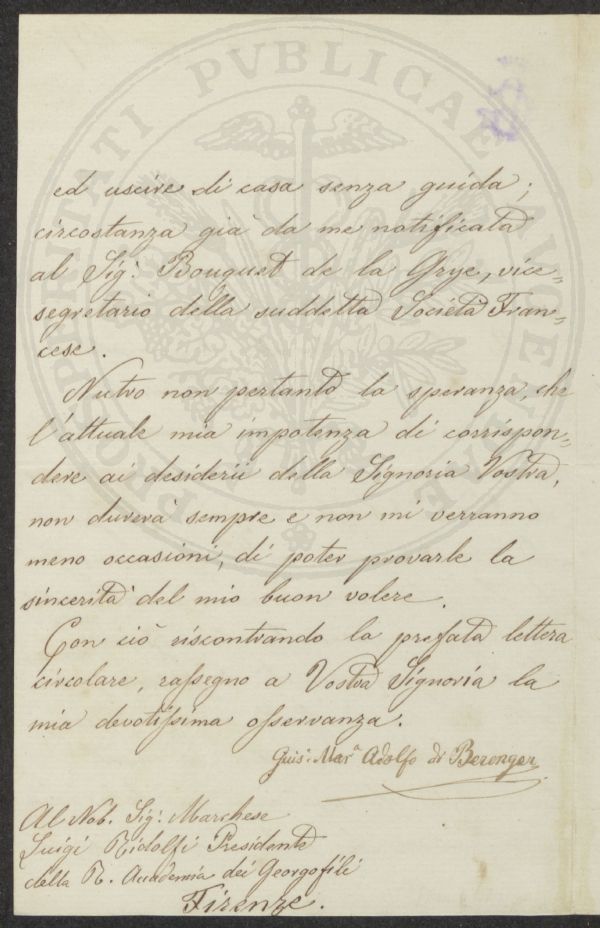 PROSPERITATI PVBLICAE AVGENDAE
ed uscire di casa senza guida;
circostanza già da me notificata
al Sig.r Bouquet de la Grye, vice=
segretario della suddetta Società Fran=
cese.
Nutro non pertanto la speranza, che
l'attuale mia impotenza di corrispon=
dere ai desiderii della Signoria Vostra,
non durerà sempre e non mi verranno
meno occasioni, di poter provarle la
sincerità del mio buon volere.
Con ciò riscontrando la prefata lettera
circolare, rassegno a Vostra Signoria la
mia devotissima osservanza.
Adolfo di Berenger
Al Nob. Sig.r Marchese
Luigi Ridolfi Presidente
della R. Accademia dei Georgofili
Firenze.